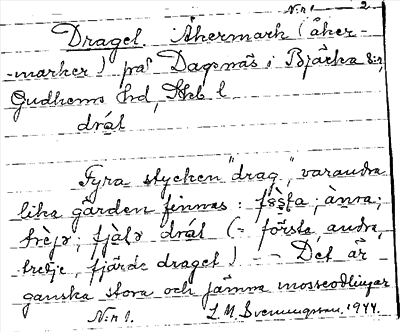 N:r 1. 2.
Draget. Åkermark (åker-
-marker) på Dagsnäs i Bjärka s:n,
Gudhems hd, Skb. l.
drát
Fyra stycken "drag", varandra
lika gärden finnas: fø̀șta; ànra;
trèjə; fjàḷə drát (= första, andra,
tredje, fjärde draget). - Det är
ganska stora och jämna mosseodlingar
N:r 1. L. M. Svenungsson, 1944.